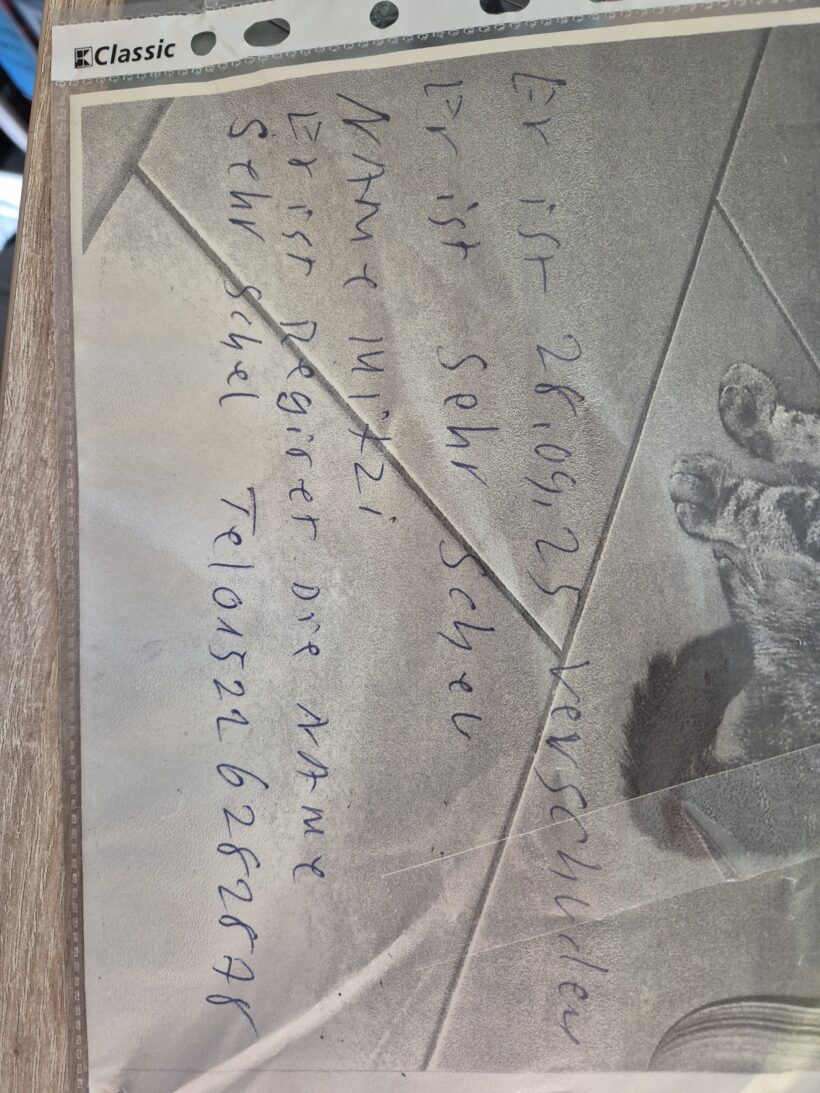 Classic
Er ist 28.09.25 Verschuden
Er ist Sehr Scheu
NAMe Mitzi
Er ist Regisret Die NAMe
Sehr Schel Tel 015226282878